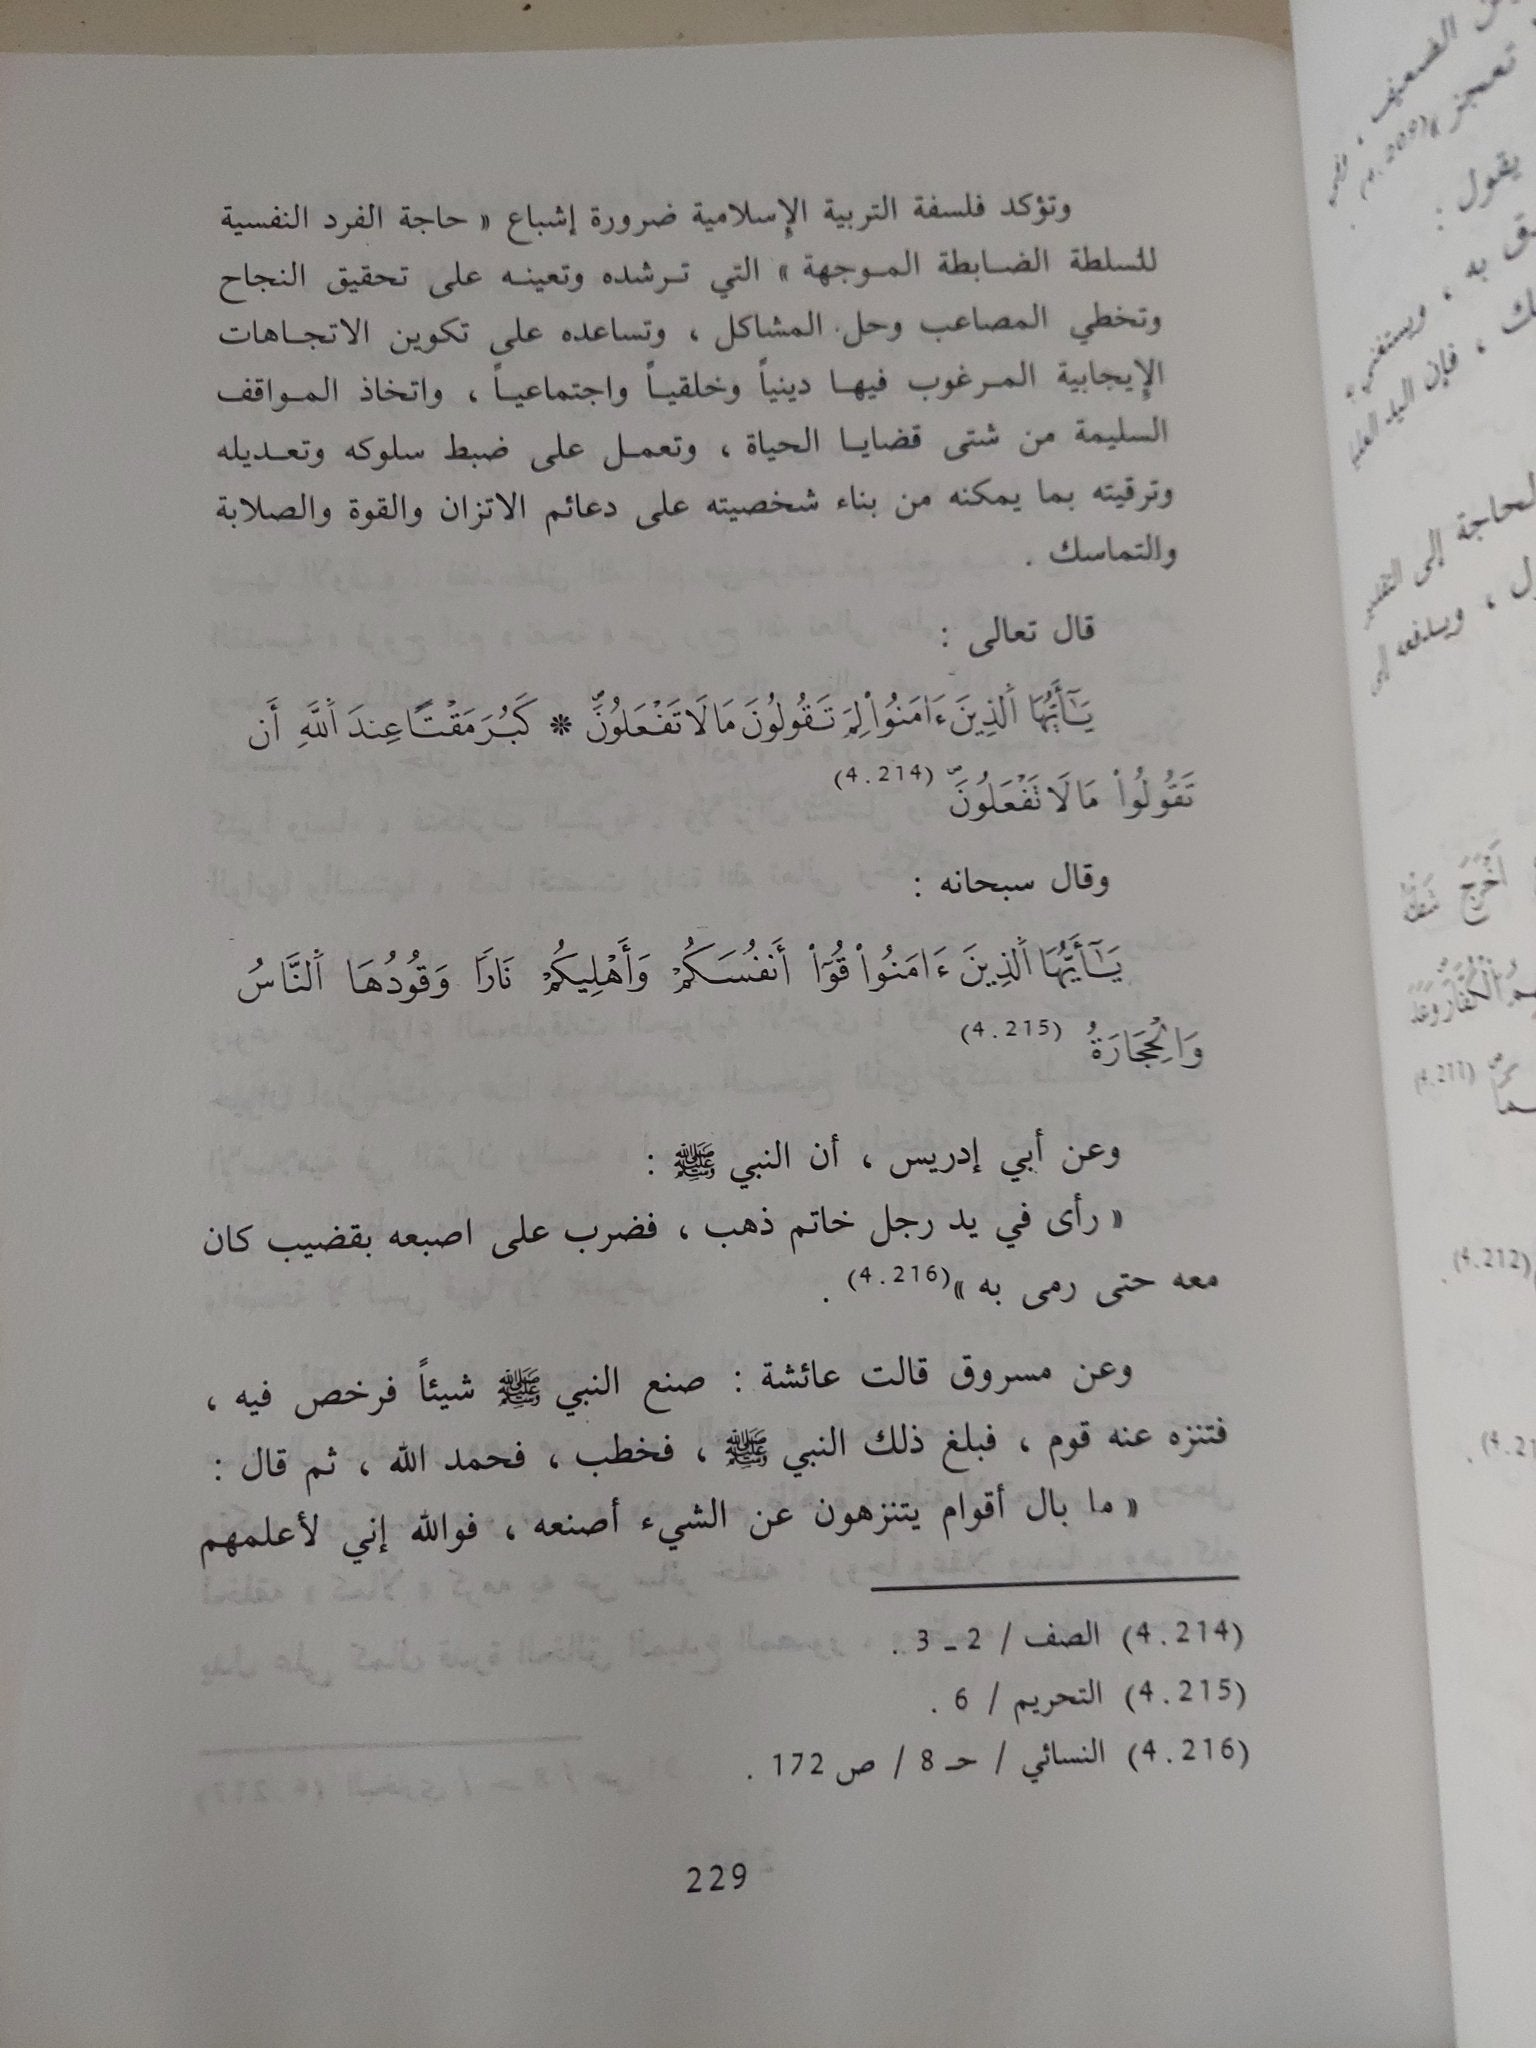 وتؤكد فلسفة التربية الإسلامية ضرورة إشباع « حاجة الفرد النفسية
للسلطة الضابطة الموجهة » التي ترشده وتعينه على تحقيق النجاح
وتخطي المصاعب وحل المشاكل ، وتساعده على تكوين الاتجاهات
الإيجابية المرغوب فيها دينياً وخلقياً واجتماعياً ، واتخاذ المواقف
السليمة من شتى قضايا الحياة ، وتعمل على ضبط سلوكه وتعديله
وترقيته بما يمكنه من بناء شخصيته على دعائم الاتزان والقوة والصلابة
والتماسك .
قال تعالى :
يَٰٓأَيُّهَا ٱلَّذِينَ ءَامَنُوا۟ لِمَ تَقُولُونَ مَا لَا تَفْعَلُونَ * كَبُرَ مَقْتًا عِندَ ٱللَّهِ أَن
تَقُولُوا۟ مَا لَا تَفْعَلُونَ (4.214)
وقال سبحانه :
يَٰٓأَيُّهَا ٱلَّذِينَ ءَامَنُوا۟ قُوٓا۟ أَنفُسَكُمْ وَأَهْلِيكُمْ نَارًا وَقُودُهَا ٱلنَّاسُ
وَٱلْحِجَارَةُ (4.215)
وعن أبي إدريس ، أن النبي ﷺ :
« رأى في يد رجل خاتم ذهب ، فضرب على اصبعه بقضيب كان
معه حتى رمى به »(4.216) .
وعن مسروق قالت عائشة : صنع النبي ﷺ شيئاً فرخص فيه ،
فتنزه عنه قوم ، فبلغ ذلك النبي ﷺ ، فخطب ، فحمد الله ، ثم قال :
« ما بال أقوام يتنزهون عن الشيء أصنعه ، فوالله إني لأعلمهم
(4.214) الصف / 2 ـ 3 .
(4.215) التحريم / 6 .
(4.216) النسائي / حـ 8 / ص 172 .
229
الضعيف ،
تعجز »(4.209)
يقول :
به ، ويستغني
، فإن اليد
الحاجة إلى
، ويدفعه إلى
أَخْرَجَ
(4.211)
(4.212) .